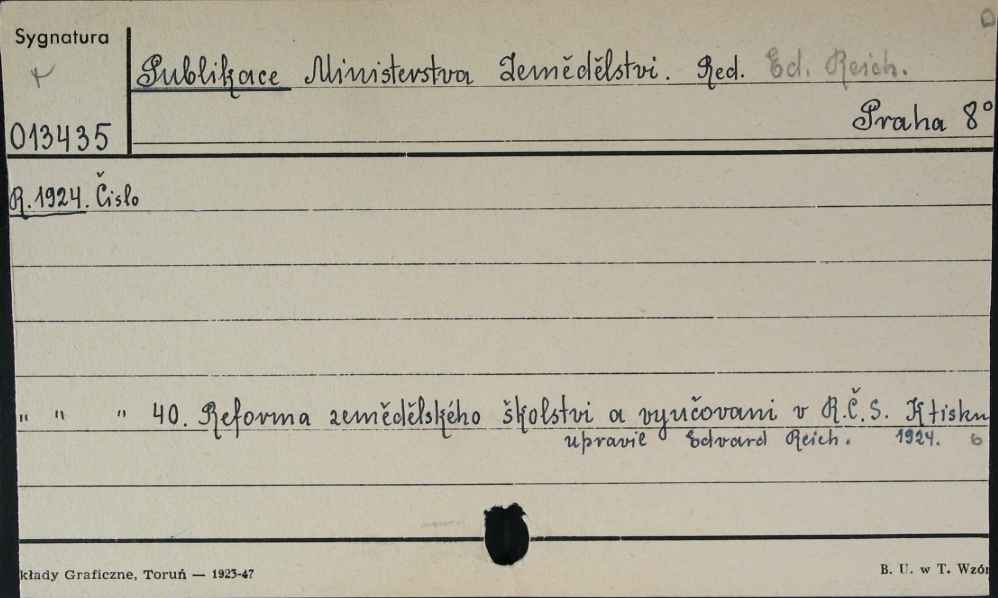 Sygnatura
Publikace Ministerstva Zemědělstvi. Red. Ed. Reich.
013435
Praha 8°
R. 1924. Čislo
" " " 40. Reforma zemědělského školstvi a vyučovani v R.Č.S. K tisku
upravil Edvard Reich. 1924. 6
kłady Graficzne, Toruń — 1923-47
B. U. w T. Wzór